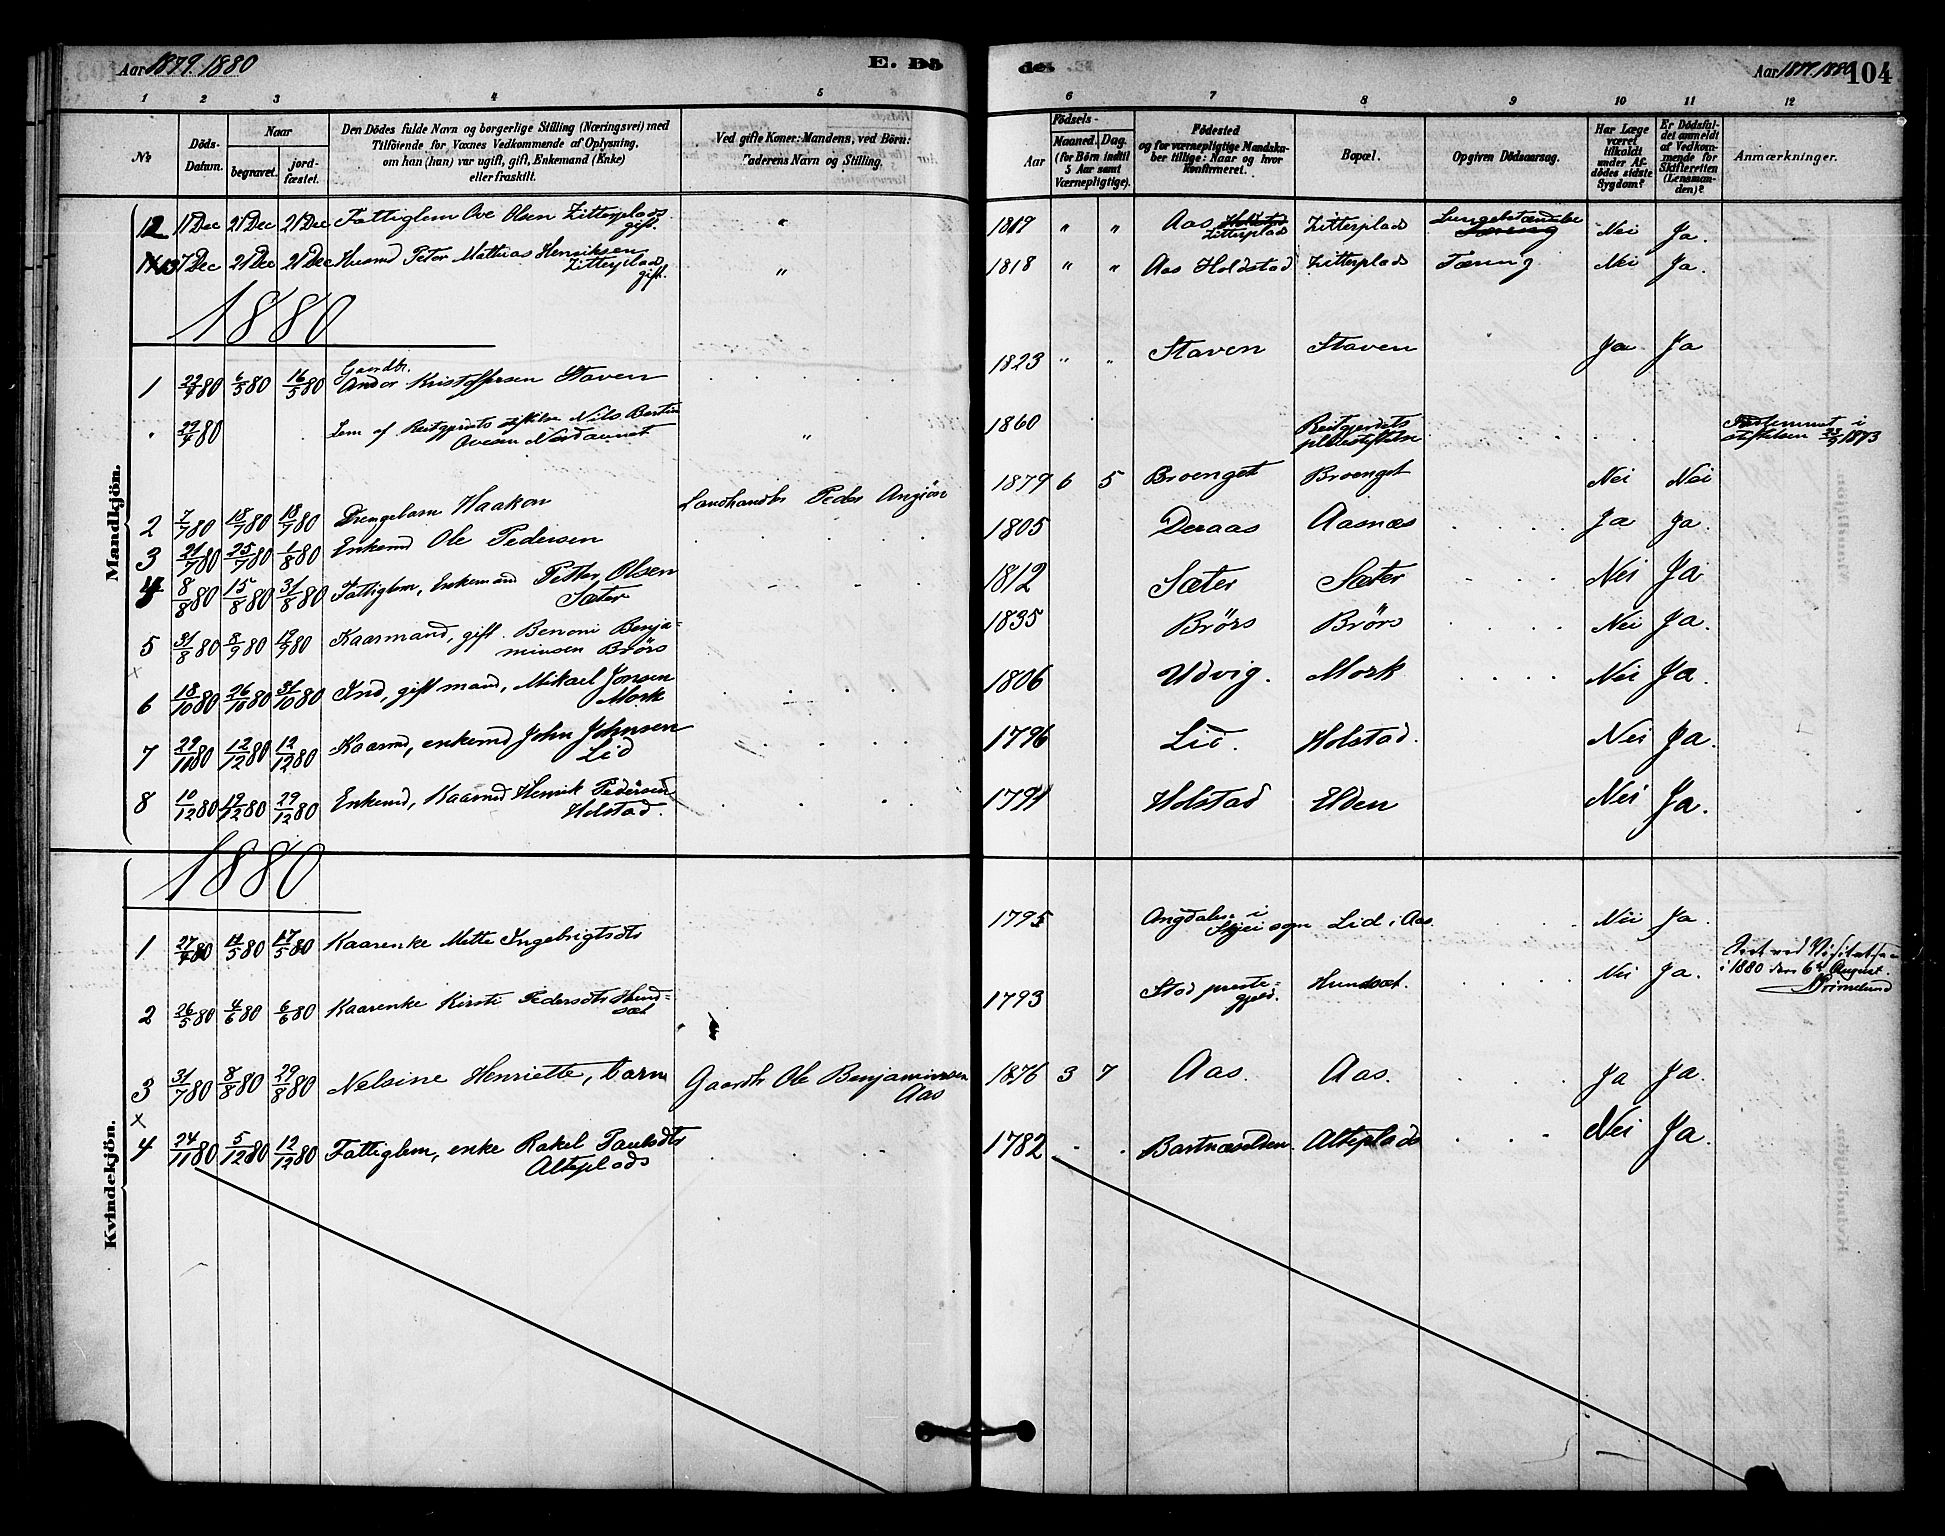 Aar 1879. 1880
E. Dö
de.
Aar 1879. 1880
104
1 2 3 4 5 6 7 8 9 10 11 12
No
Döds-
Datum.
Naar
begravet.
jord-
fæstet.
Den Dödes fulde Navn og borgerlige Stilling (Næringsvei) med
Tilföiende for Voxnes Vedkommende af Oplysning,
om han (hun) var ugift, gift, Enkemand (Enke)
eller fraskilt.
Ved gifte Koner: Mandens, ved Börn:
Faderens Navn og Stilling.
Födsels-
Aar
Maaned.
Dag.
(for Börn indtil
5 Aar samt
Værnepligtige).
Födested
og for værnepligtige Mandska-
ber tillige: Naar og hvor
Konfirmeret.
Bopæl.
Opgiven Dödsaarsag.
Har Læge
været
tilkaldt
under Af-
dödes sidste
Sygdom?
Er Dödsfal-
det anmeldt
af Vedkom-
mende for
Skifteretten
(Lensman-
den)?
Anmærkninger.
Mandkjön.
12 Dec 21 Dec 21 Dec Fattiglem Ove Olsen Zitterplads gift. " 1819 " " Aas Holstad Zitterplads Zitterplads Nei Ja.
13 17 Dec 21 Dec 21 Dec Husmd Peter Mathias Henriksen Zitterplads gift. " 1818 " " Aas Holdstad Zitterplads Tæring Nei Ja.
1880
1 6/5 80 16/5 80 Gaardbr. Kristoffersen Staven 1823 " " Staven Staven Ja Ja
" 29/4 80 Lem af Reitgjerdets stiftelse Nils " 1860 Reitgjerdets pleiestiftelse i stiftelsen 1873
2 7/7 80 18/7 80 18/7 80 Drengebarn Haakon Landhandler Peder 1879 6 5 Broenget Broenget Nei Nei
3 21/7 80 25/7 80 1/8 80 Enkemd Ole Pedersen 1805 Deraas Aasnæs Ja Ja.
4 8/8 80 15/8 80 31/8 80 Fattiglem, Enkemand Petter Olsen Sæter 1812 Sæter Sæter Nei Ja
5 31/8 80 8/9 80 19/9 80 Kaarmand, gift. Benoni Benja-
minsen Brörs 1835 Brörs Brörs Nei Ja.
x
6 18/10 80 26/10 80 31/10 80 Ind, gift mand, Mikael Jonsen Mork 1806 Udvig. Mork Nei Ja.
7 29/11 80 12/12 80 12/12 80 Kaarmd, enkemd John Johnsen Lid 1796 Lid. Holstad. Nei Ja.
8 10/12 80 19/12 80 29/12 80 Enkemd, Kaarmd Henrik Pedersen Holstad. 1791 Holstad Elden Nei Ja.
Kvindekjön.
1880
1 27/4 80 17/5 80 Kaarenke Mette Ingebrigtsdtr 1795 i Skjei sogn Lid i Aas. Nei Ja.
2 26/5 80 4/6 80 6/6 80 Kaarenke Kirsti Pedersdtr Hund-
sæt 1793 Stod preste-
gjeld. Hundsæt. Nei Ja. ved i 1880 den 6te August.
3 31/7 80 8/8 80 29/8 80 Nelsine Henriette, barn Gaardbr Ole Benjaminsen Aas 1876 3 7 Aas. Aas. Ja Ja.
x
4 24/11 80 5/12 80 12/12 80 Fattiglem, enke Rakel Paulsdtr Alteplads 1782 Bartnæselden Alteplads Nei Ja.